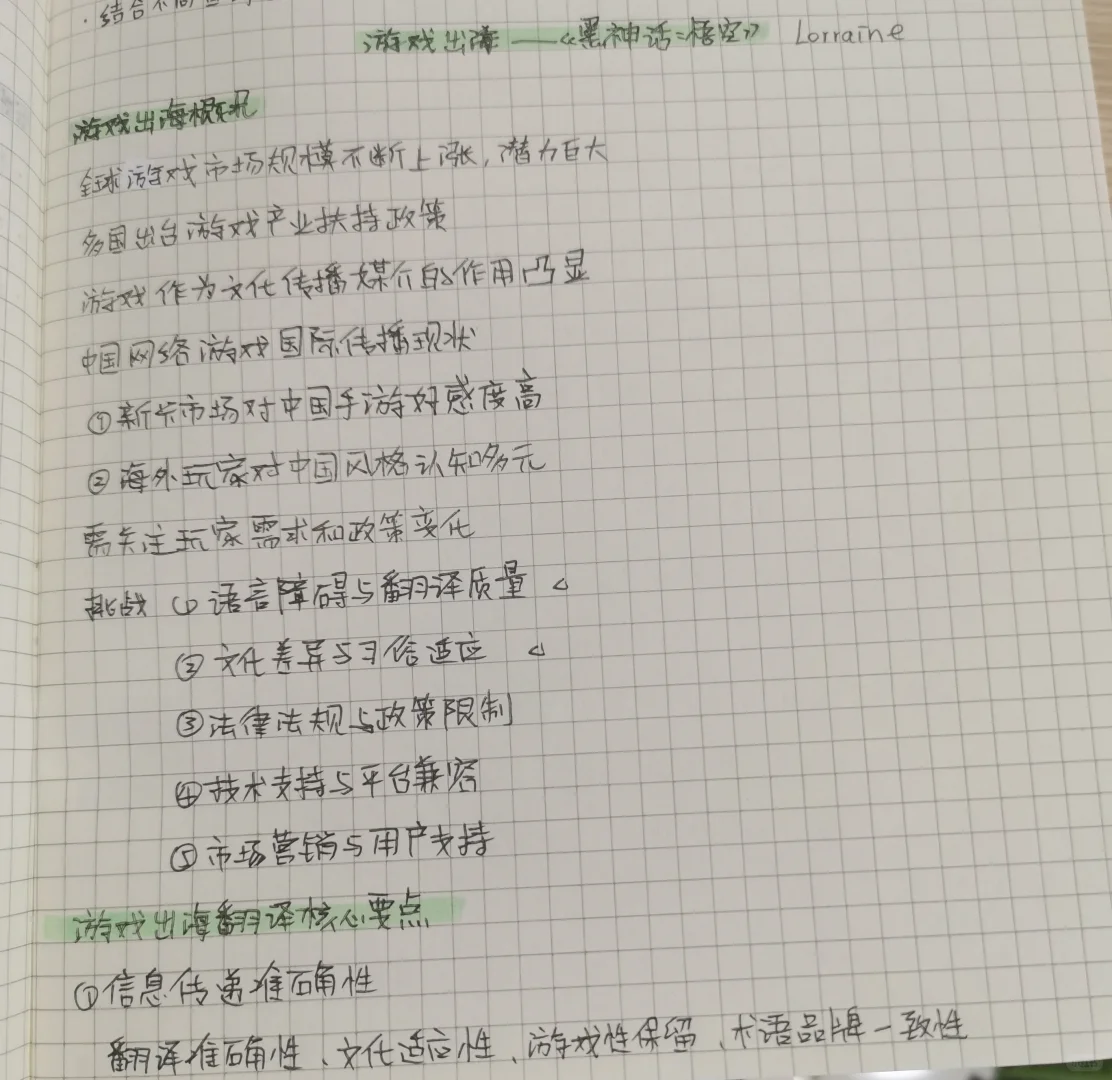 ·结合不同
游戏出海——《黑神话:悟空》 Lorraine
游戏出海概况
全球游戏市场规模不断上涨,潜力巨大
多国出台游戏产业扶持政策
游戏作为文化传播媒介的作用凸显
中国网络游戏国际传播现状
①新兴市场对中国手游好感度高
②海外玩家对中国风格认知多元
需关注玩家需求和政策变化
挑战 ①语言障碍与翻译质量 △
②文化差异与习俗适应 △
③法律法规与政策限制
④技术支持与平台兼容
⑤市场营销与用户支持
游戏出海翻译核心要点
①信息传递准确性
翻译准确性、文化适应性、游戏性保留、术语品牌一致性